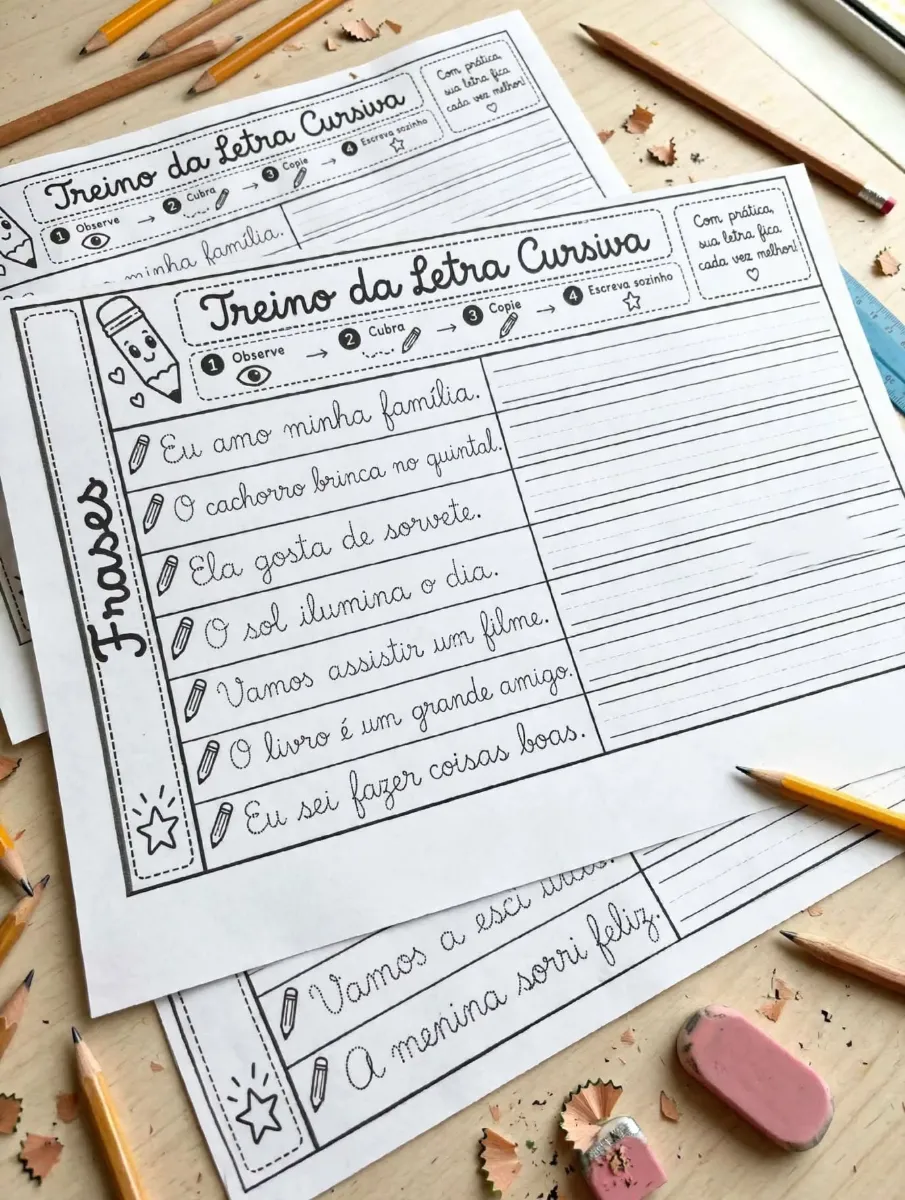 Treino da Letra Cursiva
1 Observe → 2 Cubra → 3 Copie → 4 Escreva sozinho
Com prática,
sua letra fica
cada vez melhor!
minha família.
Treino da Letra Cursiva
1 Observe → 2 Cubra → 3 Copie → 4 Escreva sozinho
Com prática,
sua letra fica
cada vez melhor!
Frases
Eu amo minha família.
O cachorro brinca no quintal.
Ela gosta de sorvete.
O sol ilumina o dia.
Vamos assistir um filme.
O livro é um grande amigo.
Eu sei fazer coisas boas.
Vamos a
A menina sorri feliz.